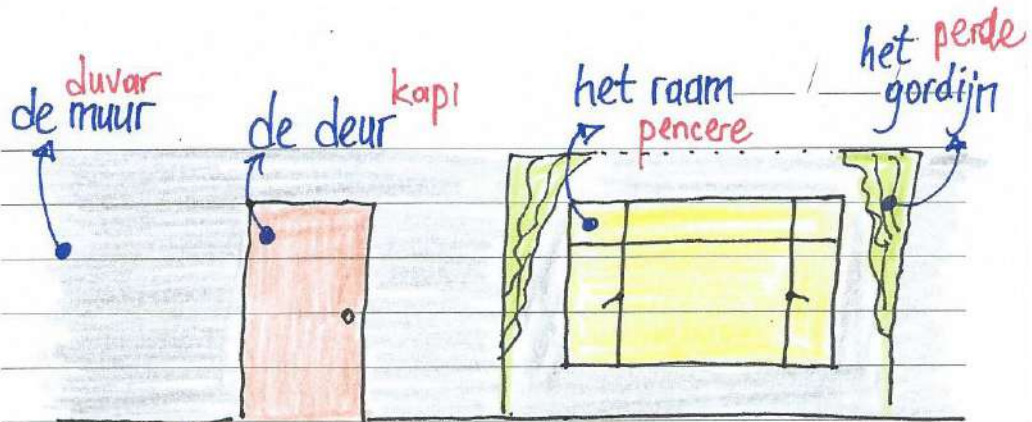 duvar
de muur
kapı
de deur
het raam
pencere
het perde
gordijn